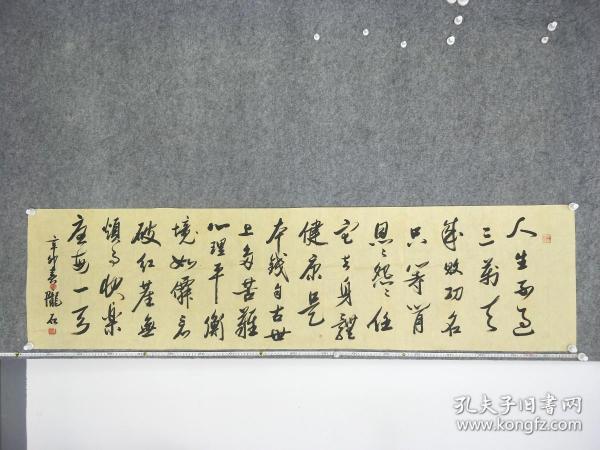 人生不過
三萬天
成敗功名
只等閒
恩〻怨〻任
它去身體
健康是
本錢自古世
上多苦難
心理平衡
境如僊看
破紅塵無
煩事快樂
度每一天
辛卯春 隴石
孔夫子旧书网
www.kongfz.com